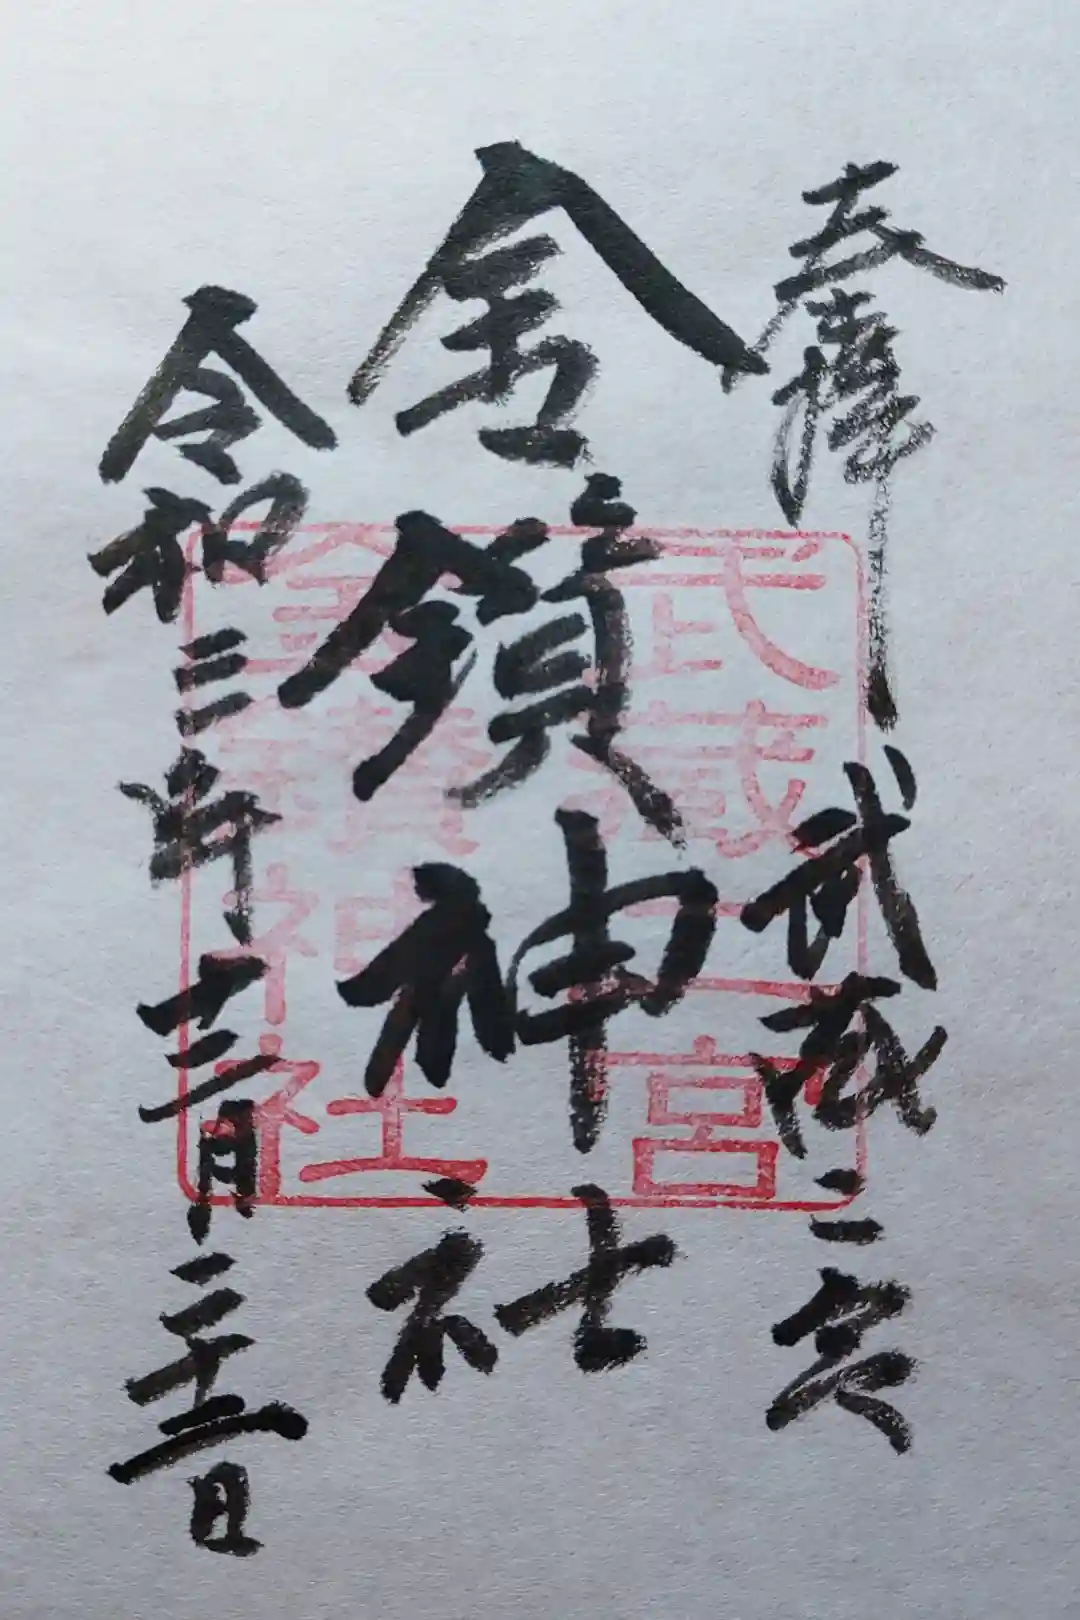 奉拝
武蔵二宮
金鑚神社
令和三年十二月
武蔵二宮
金鑚神社